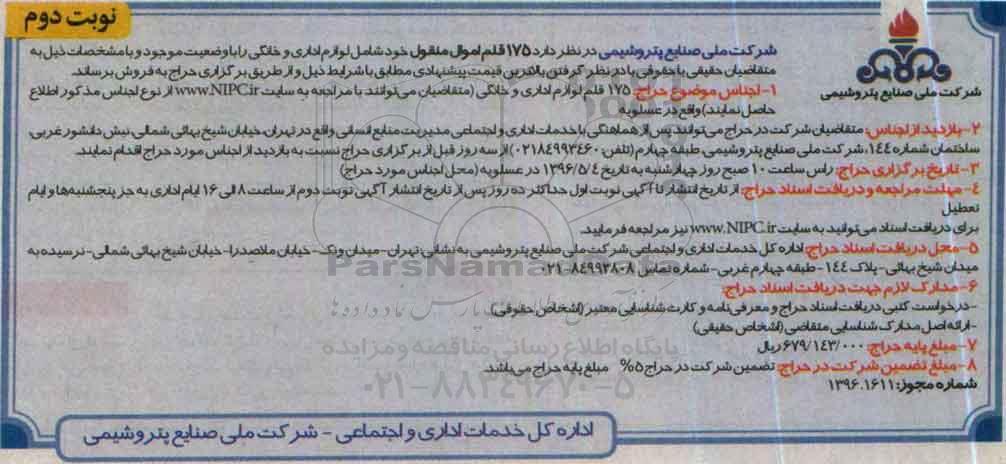 نوبت دوم
شرکت ملی صنایع پتروشیمی
شرکت ملی صنایع پتروشیمی در نظر دارد ۱۷۵ قلم اموال منقول خود شامل لوازم اداری و خانگی را با وضعیت موجود و با مشخصات ذیل به
متقاضیان حقیقی یا حقوقی با در نظر گرفتن بالاترین قیمت پیشنهادی مطابق با شرایط ذیل و از طریق برگزاری حراج به فروش برساند.
۱- اجناس موضوع حراج: ۱۷۵ قلم لوازم اداری و خانگی (متقاضیان می‌توانند با مراجعه به سایت www.NIPC.ir از نوع اجناس مذکور اطلاع
حاصل نمایند) واقع در عسلویه
۲- بازدید از اجناس: متقاضیان شرکت در حراج می‌توانند پس از هماهنگی با خدمات اداری و اجتماعی مدیریت منابع انسانی واقع در تهران، خیابان شیخ بهائی شمالی، نبش دانشور غربی،
ساختمان شماره ۱۴۴، شرکت ملی صنایع پتروشیمی، طبقه چهارم (تلفن: ۰۲۱۸۴۹۹۳۴۶۰) از سه روز قبل از برگزاری حراج نسبت به بازدید از اجناس مورد حراج اقدام نمایند.
۳- تاریخ برگزاری حراج: راس ساعت ۱۰ صبح روز چهارشنبه به تاریخ ۱۳۹۶/۵/۴ در عسلویه (محل اجناس مورد حراج)
۴- مهلت مراجعه و دریافت اسناد حراج: از تاریخ انتشار تا آگهی نوبت اول حداکثر ده روز پس از تاریخ انتشار آگهی نوبت دوم از ساعت ۸ الی ۱۶ ایام اداری به جز پنجشنبه‌ها و ایام
تعطیل
برای دریافت اسناد می‌توانید به سایت www.NIPC.ir نیز مراجعه فرمایید.
۵- محل دریافت اسناد حراج: اداره کل خدمات اداری و اجتماعی شرکت ملی صنایع پتروشیمی به نشانی: تهران- میدان ونک- خیابان ملاصدرا- خیابان شیخ بهائی شمالی- نرسیده به
میدان شیخ بهائی- پلاک ۱۴۴- طبقه چهارم غربی- شماره تماس ۸۴۹۹۳۸۰۸-۰۲۱
۶- مدارک لازم جهت دریافت اسناد حراج:
- درخواست کتبی دریافت اسناد حراج و معرفی نامه و کارت شناسایی معتبر (اشخاص حقوقی)
- ارائه اصل مدارک شناسایی متقاضی (اشخاص حقیقی)
۷- مبلغ پایه حراج: ۶۷۹/۱۴۳/۰۰۰ ریال
۸- مبلغ تضمین شرکت در حراج: تضمین شرکت در حراج ۵% مبلغ پایه حراج می‌باشد.
شماره مجوز: ۱۳۹۶.۱۶۱۱
اداره کل خدمات اداری و اجتماعی - شرکت ملی صنایع پتروشیمی
ParsNamadData
پایگاه اطلاع رسانی مناقصه و مزایده
۰۲۱-۸۸۳۴۹۶۷۰-۵